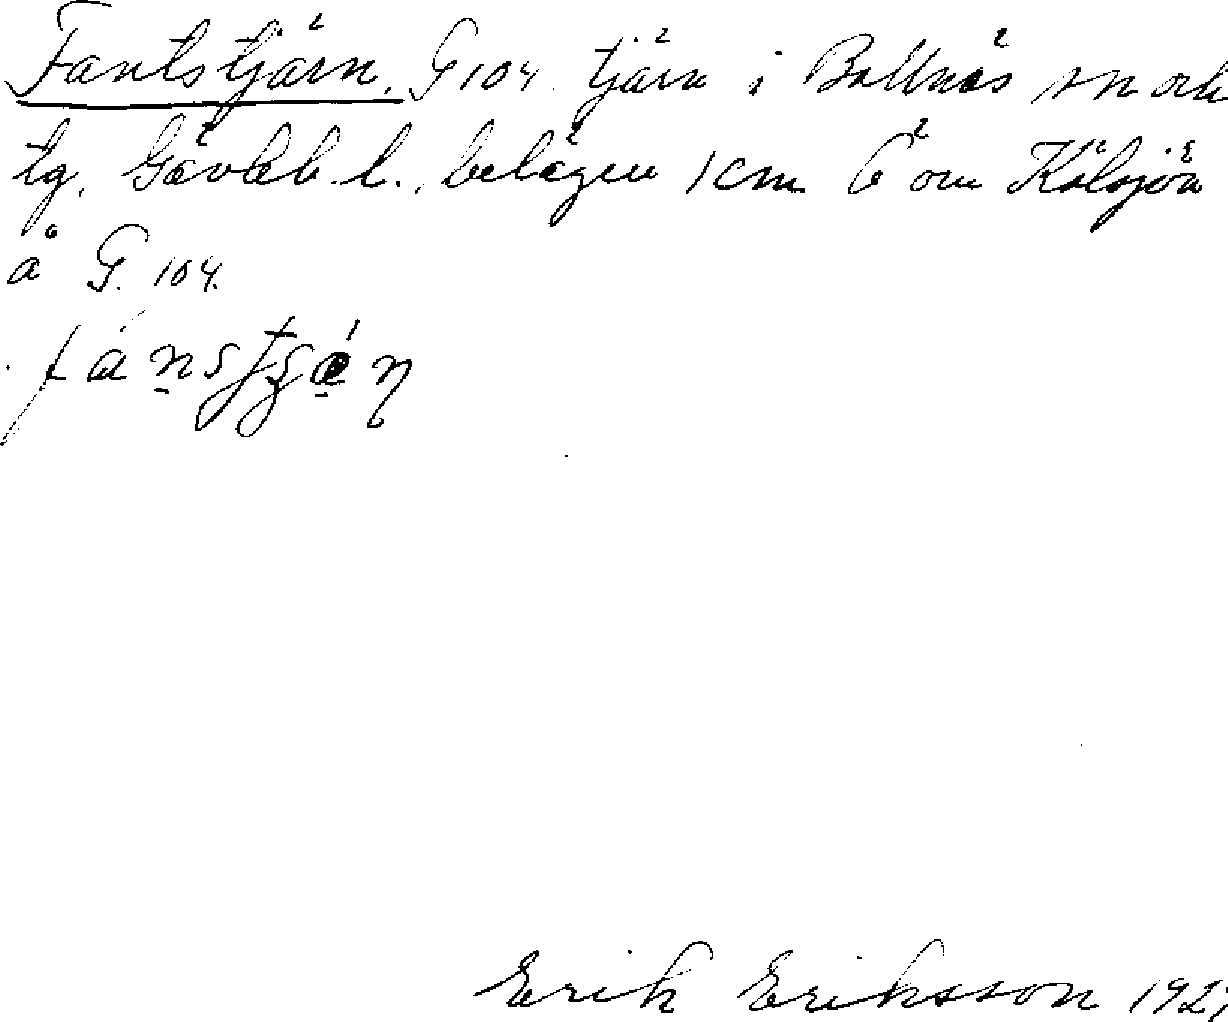 Fantstjärn. G 104. tjärn i Bollnäs sn och
tg. Gävleb. l., belägen 1 cm Ö om Kölsjön
å G. 104.
Erik Eriksson